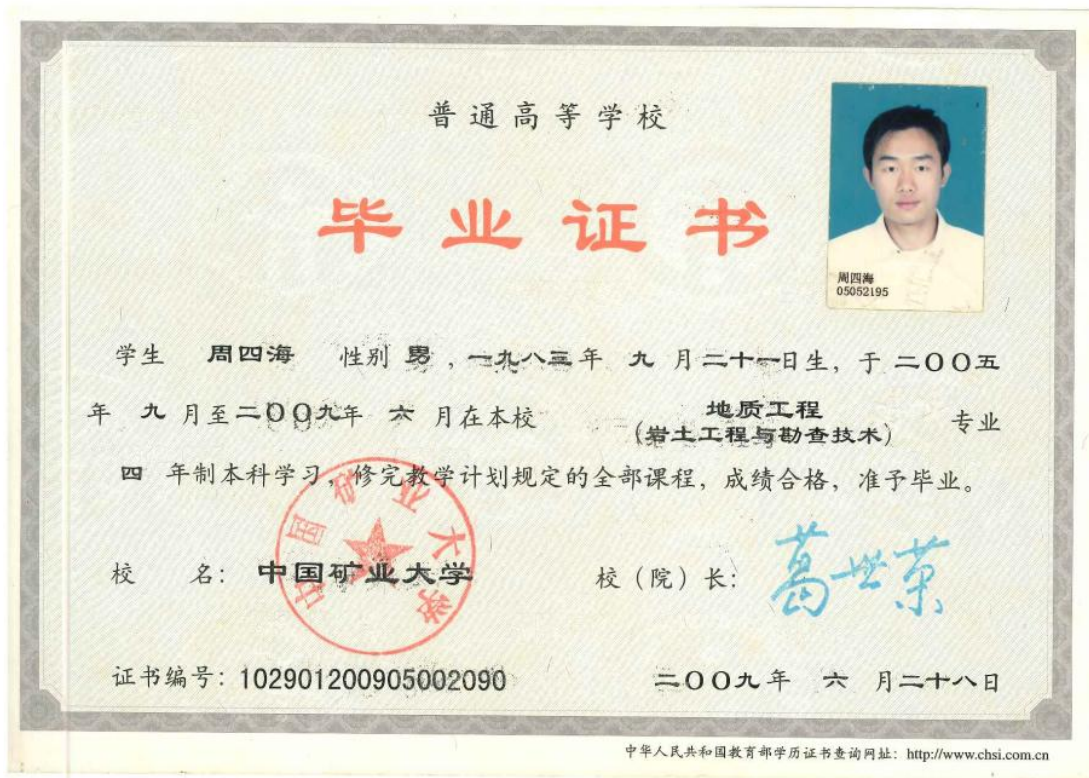 普通高等学校
毕业证书
周四海
05052195
学生 周四海 性别 男，一九八三年 九 月二十一日生，于 二〇〇五
年 九 月至二〇〇九年 六 月在本校 地质工程 专业
（岩土工程与勘查技术）
四 年制本科学习，修完教学计划规定的全部课程，成绩合格，准予毕业。
中国矿业大学
校 名：中国矿业大学 校（院）长：葛世荣
证书编号：102901200905002090 二〇〇九年 六 月二十八日
中华人民共和国教育部学历证书查询网址：http://www.chsi.com.cn